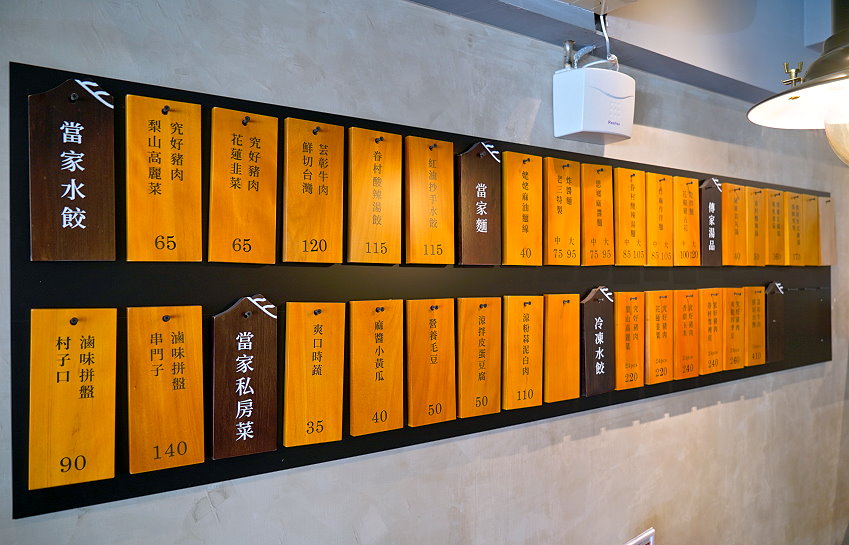 當家水餃
究好豬肉
梨山高麗菜
65
究好豬肉
花蓮韭菜
65
芸彰牛肉
鮮切台灣
120
眷村酸辣湯餃
115
紅油抄手水餃
115
當家麵
姥姥麻油麵線
40
炸醬麵
老三特製
中 大
75 95
中 大
75 95
眷村酸辣湯麵
中 大
85 105
中 大
85 105
中 大
100 120
傳家湯品
滷味拼盤
村子口
90
滷味拼盤
串門子
140
當家私房菜
爽口時蔬
35
麻醬小黃瓜
40
營養毛豆
50
涼拌皮蛋豆腐
50
涼粉蒜泥白肉
110
冷凍水餃
究好豬肉
梨山高麗菜
220
究好豬肉
花蓮韭菜
220
240
240
260
410